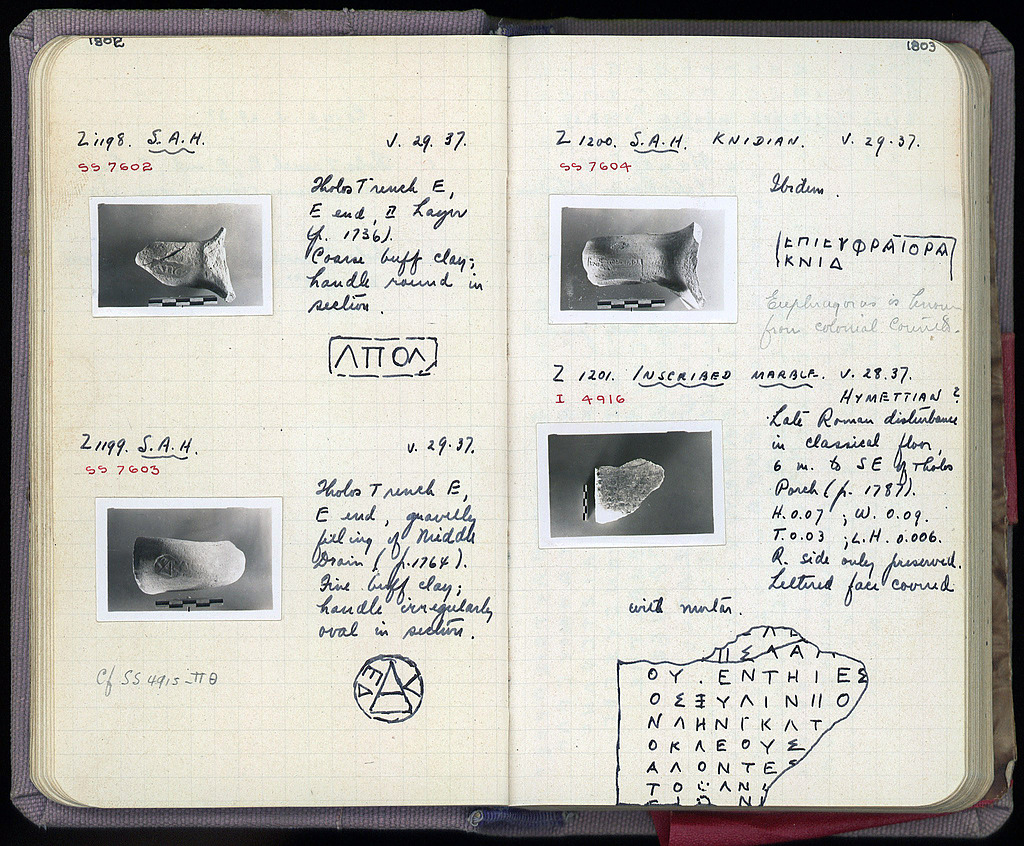 1802
Z 1198. S.A.H. V. 29. 37.
SS 7602
Tholos Trench E,
E end, II Layer
(p. 1736).
Coarse buff clay;
handle round in
section.
ΛΠΟΛ
Z 1199. S.A.H. V. 29.37.
SS 7603
Tholos Trench E,
E end, gravelly
filling of Middle
Drain (p. 1764).
Fine buff clay;
handle irregularly
oval in section.
Cf SS 4915 - Πθ
1803
Z 1200. S.A.H. KNIDIAN. V. 29.37.
SS 7604
Ibidem.
ΕΠΙΕΥΦΡΑΓΟΡΑ
ΚΝΙΔ
Euphragoras is known
from colonial
Z 1201. INSCRIBED MARBLE. V. 28.37.
I 4916
HYMETTIAN?
Late Roman disturbance
in classical floor,
6 m. to SE of Tholos
Porch (p. 1787).
H. 0.07 ; W. 0.09.
T. 0.03 ; L.H. 0.006.
R. side only preserved.
Lettered face covered
with mortar.
ΟΥ . ΕΝΤΗΙΕΣ
ΟΣΞΥΛΙΝ Ο
ΝΛΗΝΓΚΛΤ
ΟΚΛΕΟΥΣ
ΑΛΟΝΤΕΣ